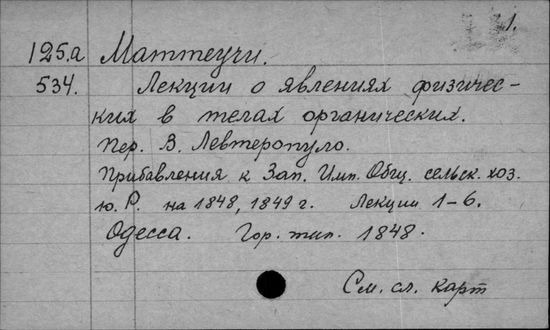 1.
125.а Маттеучи.
534. Лекции о явлениях физичес-
ких в телах органических.
Пер. В. Левтеропуло.
Прибавления к Зап. Имп. Общ. сельск. хоз.
ю. Р. на 1848, 1849 г. Лекции 1-6.
Одесса. Гор. тип. 1848.
См. сл. карт